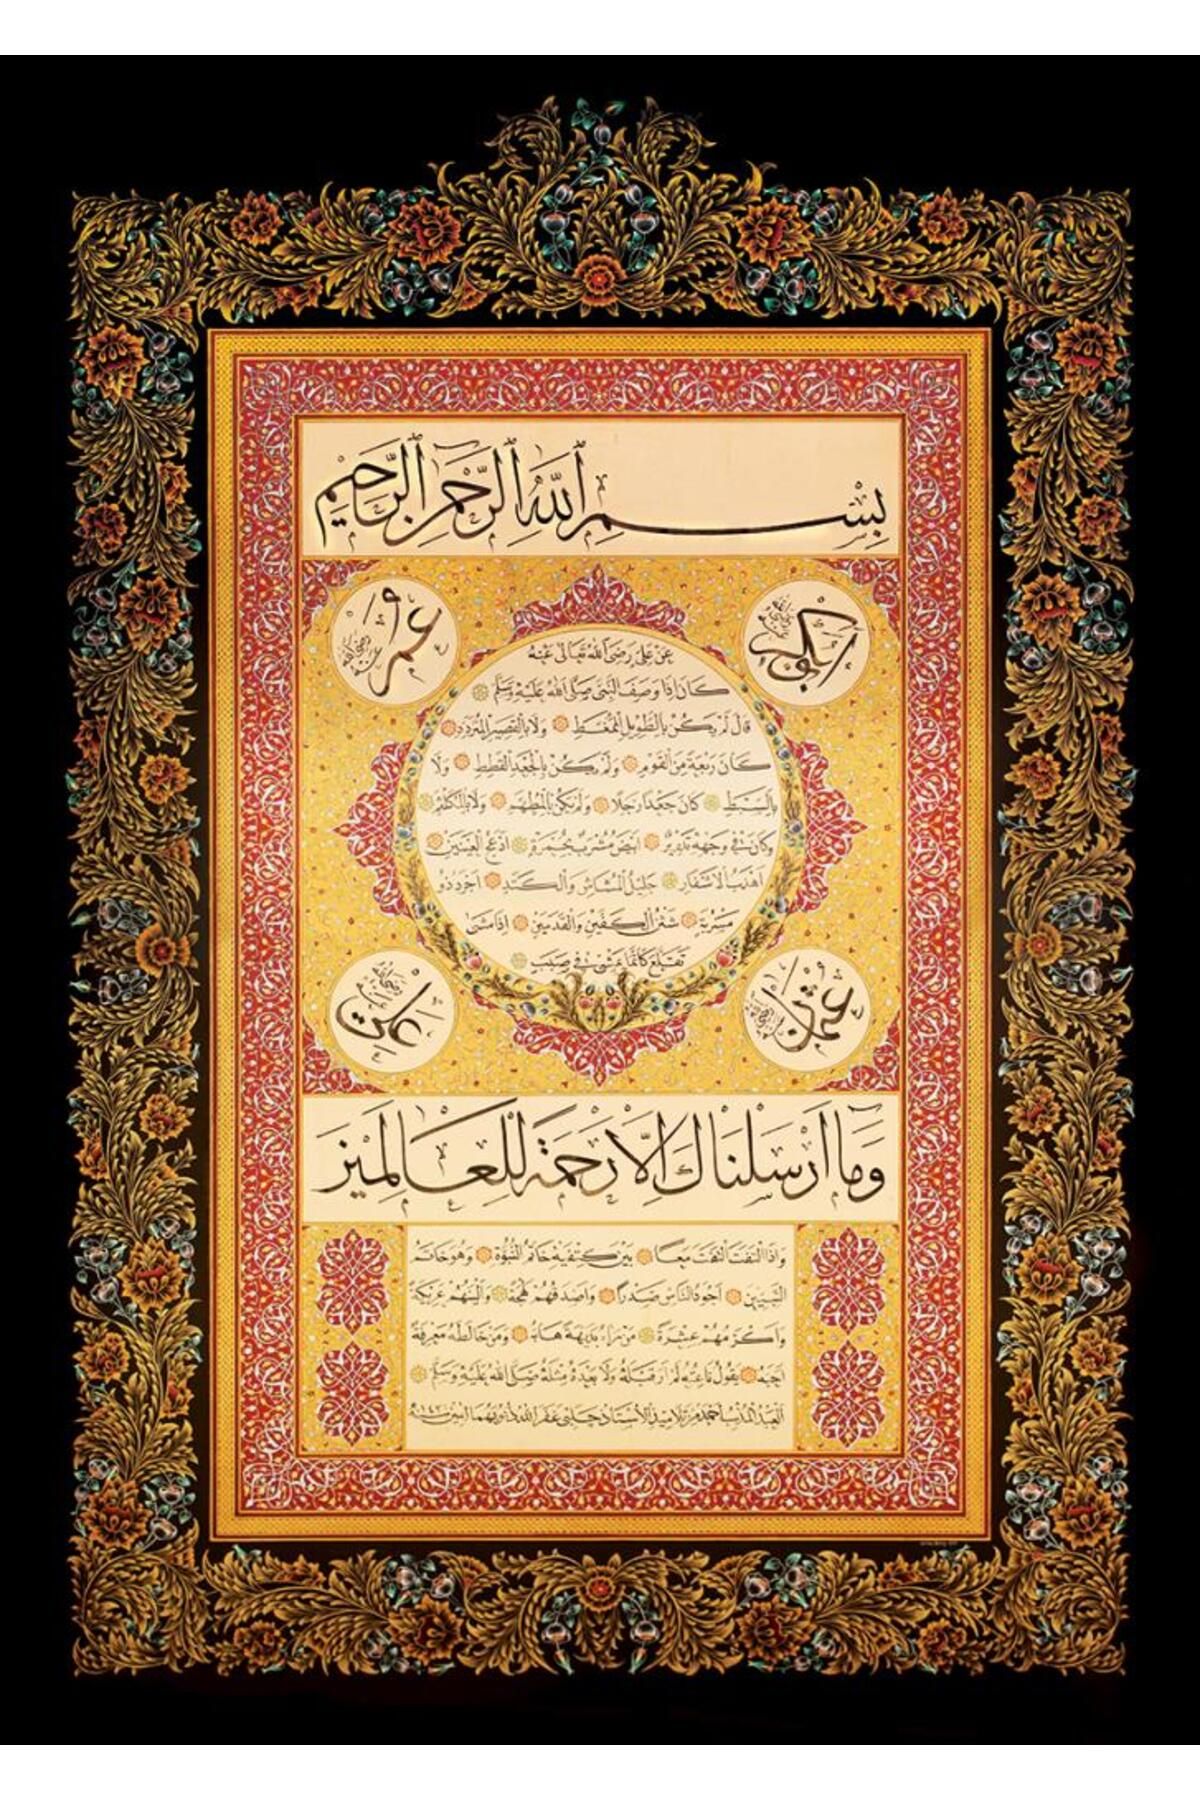 بِسْمِ ٱللّٰهِ ٱلرَّحْمٰنِ ٱلرَّحِيمِ
ابوبكر رضي الله عنه
عمر رضي الله عنه
عن علي رضي الله تعالى عنه
كان اذا وصف النبي صلى الله عليه وسلم
قال لم يكن بالطويل الممغط ولا بالقصير المتردد
كان ربعة من القوم ولم يكن بالجعد القطط ولا
بالسبط كان جعدا رجلا ولم يكن بالمطهم ولا بالمكلثم
وكان في وجهه تدوير ابيض مشرب حمرة ادعج العينين
اهدب الاشفار جليل المشاش والكتد اجرد ذو
مسربة شثن الكفين والقدمين اذا مشى
تقلع كأنما يمشي في صبب
عثمان رضي الله عنه
علي رضي الله عنه
وَمَا اَرْسَلْنَاكَ اِلَّا رَحْمَةً لِلْعَالَمِينَ
واذا التفت التفت معا بين كتفيه خاتم النبوة وهو خاتم
النبيين اجود الناس صدرا واصدقهم لهجة والينهم عريكة
واكرمهم عشرة من رآه بديهة هابه ومن خالطه معرفة
احبه يقول ناعته لم ار قبله ولا بعده مثله صلى الله عليه وسلم
العبد المذنب احمد من تلاميذ الاستاذ چلبي غفر الله ذنوبهما امين